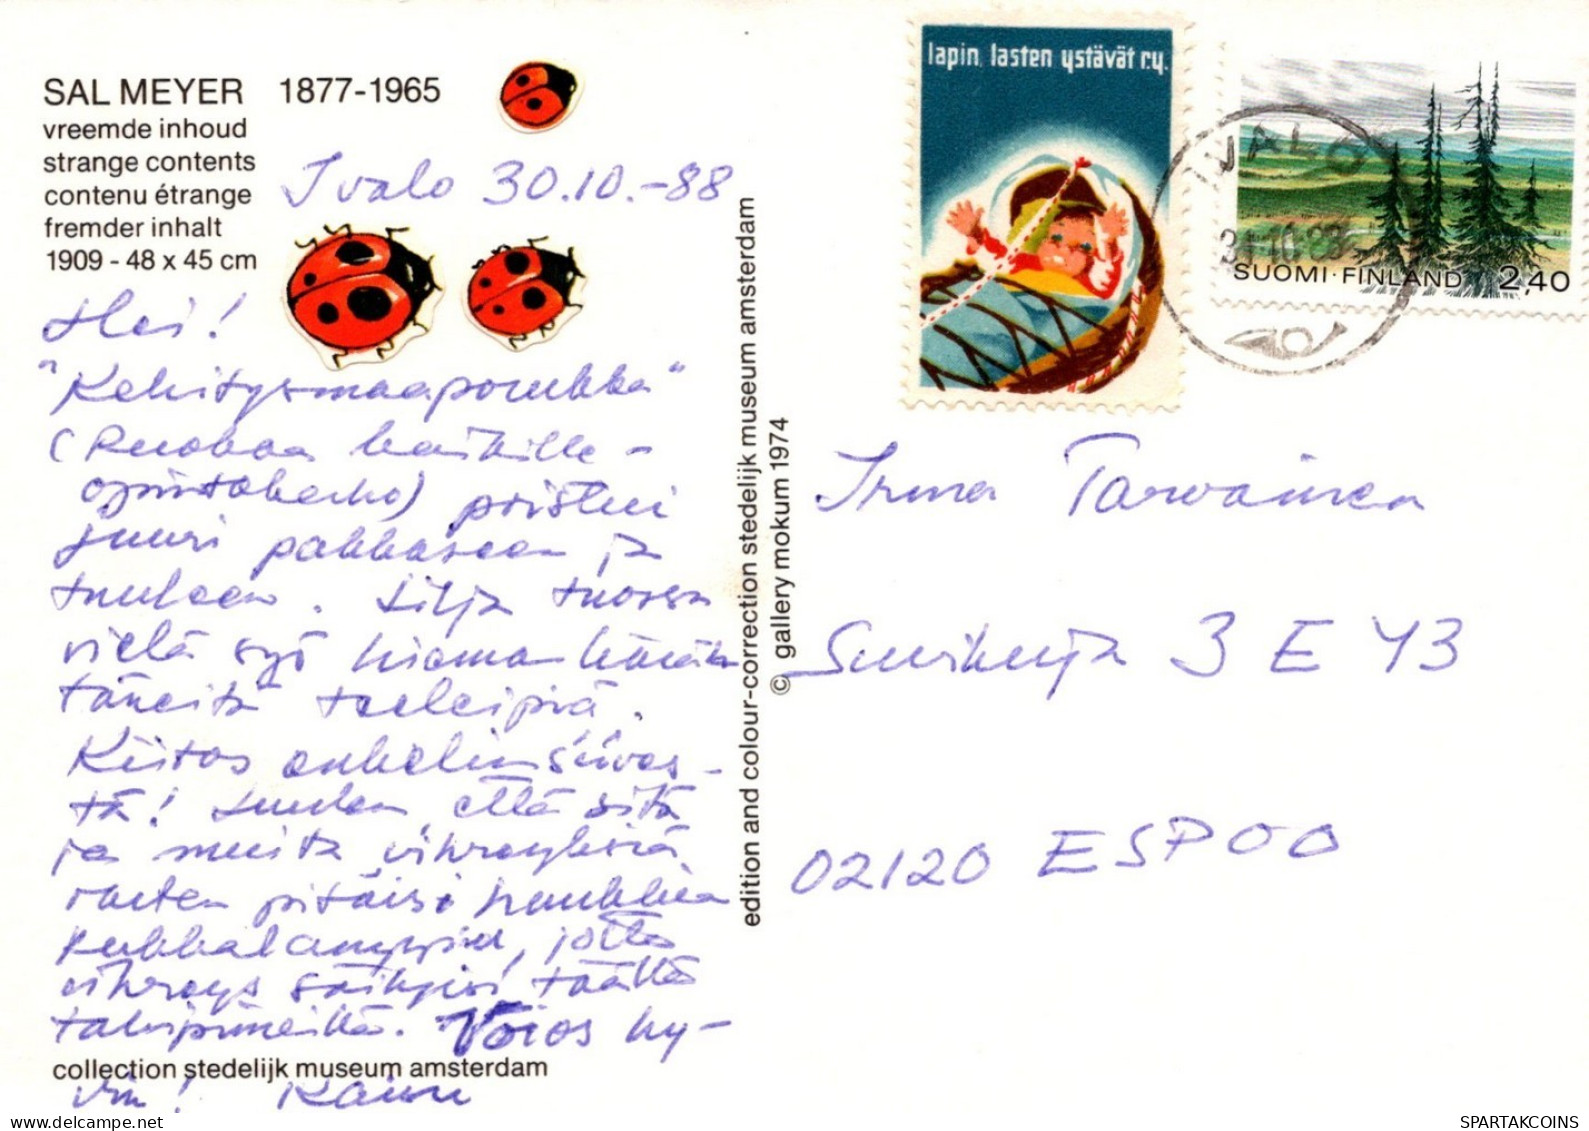 SAL MEYER 1877-1965
vreemde inhoud
strange contents
contenu étrange
fremder inhalt
1909 - 48 x 45 cm
Ivalo 30.10.-88
Hei!
"Kehitysmaaporukka"
(Ruokaa kaikille -
opintokerho) poistui
juuri pakkaseen ja
tuuleen. Silja tuossa
vielä syö hieman
tähteitä teeleipiä.
Kiitos enkelin siivis-
tä! Luulen, että sitä
ja muita vihreyksiä
varten pitäisi hankkia
kukkalamppu, jotta
vihreys säilyisi täällä
talvipimeillä. Voios hy-
vin! Kaisu
collection stedelijk museum amsterdam
edition and colour-correction stedelijk museum amsterdam
© gallery mokum 1974
lapin lasten ystävät r.y.
IVALO
31.10.88
SUOMI·FINLAND 2,40
Irma Tarvainen
Suvikuja 3 E 43
02120 ESPOO
SPARTAKCOINS
https://www.delcampe.net